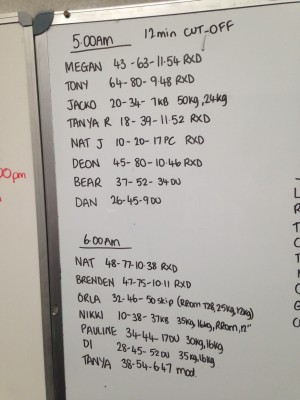 5:00AM 12min CUT-OFF
MEGAN 43-63-11.54 RXD
TONY 64-80-9.48 RXD
JACKO 20-34-7KB 50kg, 24kg
TANYA R 18-39-11.52 RXD
NAT J 10-20-17PC RXD
DEON 45-80-10.46 RXD
BEAR 37-52-34DU
DAN 26-45-9DU
6:00AM
NAT 48-77-10.38 RXD
BRENDEN 47-75-10.11 RXD
ORLA 32-46-50skip (RRom T28, 25kg, 12kg)
NIKKI 10-38-37KB 35kg, 16kg, RRom, 12"
PAULINE 34-44-17DU 30kg, 16kg
DI 28-45-52DU 35kg, 16kg
TANYA 38-54-6.47 mod.
00pm